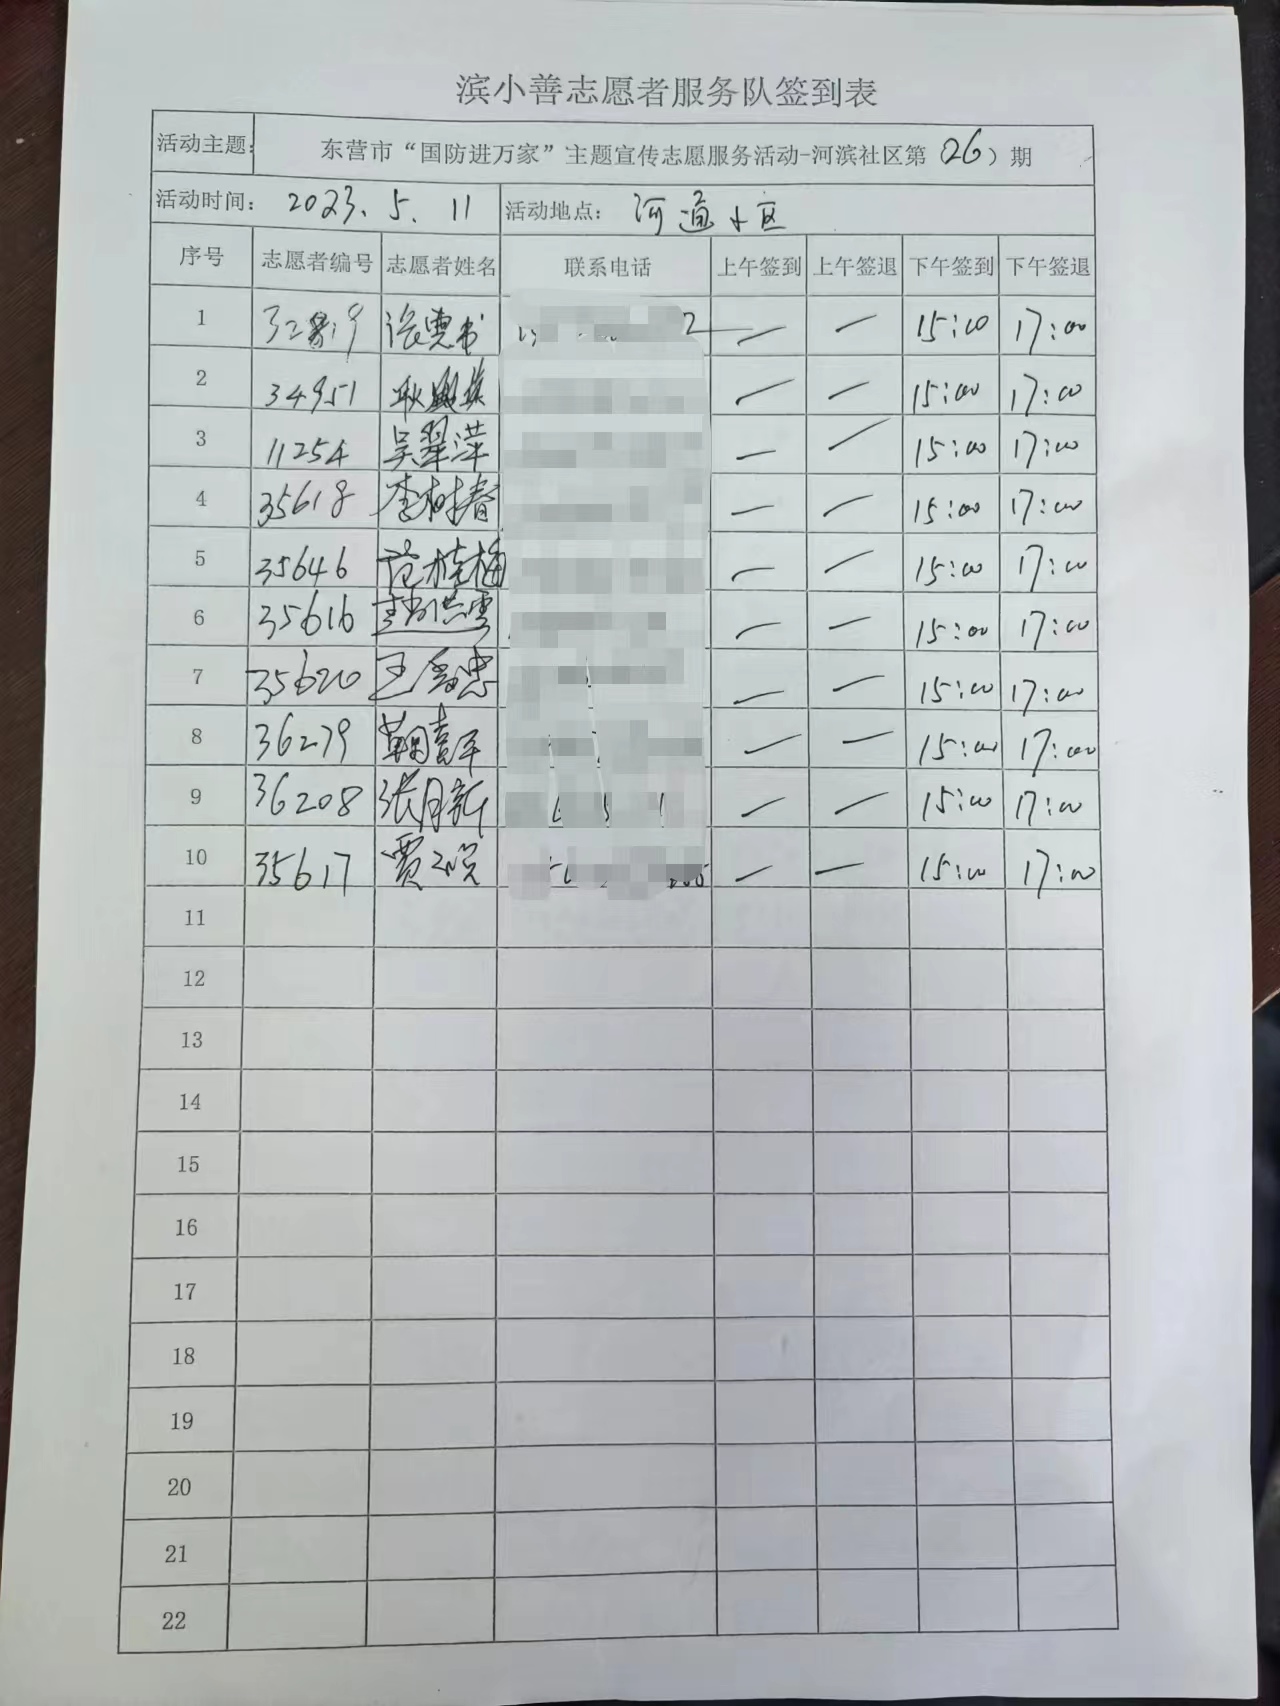 滨小善志愿者服务队签到表
活动主题: 东营市“国防进万家”主题宣传志愿服务活动-河滨社区第(26)期
活动时间: 2023.5.11 活动地点: 河通小区
序号 志愿者编号 志愿者姓名 联系电话 上午签到 上午签退 下午签到 下午签退
1 — — 15:00 17:00
2 34951 — — 15:00 17:00
3 11254 吴翠萍 — — 15:00 17:00
4 35618 李树春 — — 15:00 17:00
5 35646 范桂梅 — — 15:00 17:00
6 35616 — — 15:00 17:00
7 35620 — — 15:00 17:00
8 36279 — — 15:00 17:00
9 36208 张月新 — — 15:00 17:00
10 35617 — — 15:00 17:00
11
12
13
14
15
16
17
18
19
20
21
22